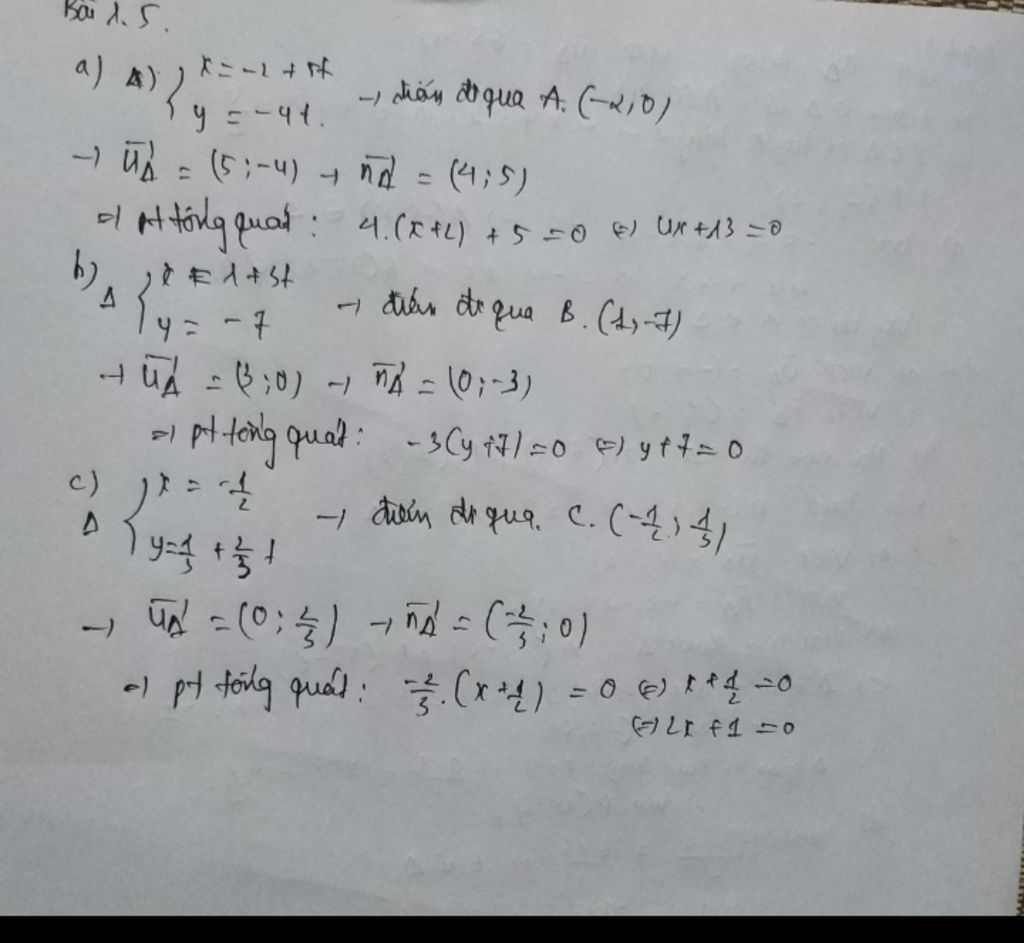 Bài 1.5.
a) Δ) { x = -2 + 5t
y = -4t. → điểm đi qua A. (-2; 0)
→ u⃗Δ = (5; -4) → n⃗Δ = (4; 5)
⇒ pt tổng quát: 4.(x+2) + 5 = 0 ⇔ 4x+13 = 0
b) Δ { x = 1 + 3t
y = -7 → điểm đi qua B. (1; -7)
→ u⃗Δ = (3; 0) → n⃗Δ = (0; -3)
⇒ pt tổng quát: -3(y+7) = 0 ⇔ y+7 = 0
c) Δ { x = -1/2
y = 1/3 + 2/3 t → điểm đi qua. C. (-1/2; 1/3)
→ u⃗Δ = (0; 2/3) → n⃗Δ = (-2/3; 0)
⇒ pt tổng quát: -2/3.(x+1/2) = 0 ⇔ x+1/2 = 0
⇔ 2x+1 = 0